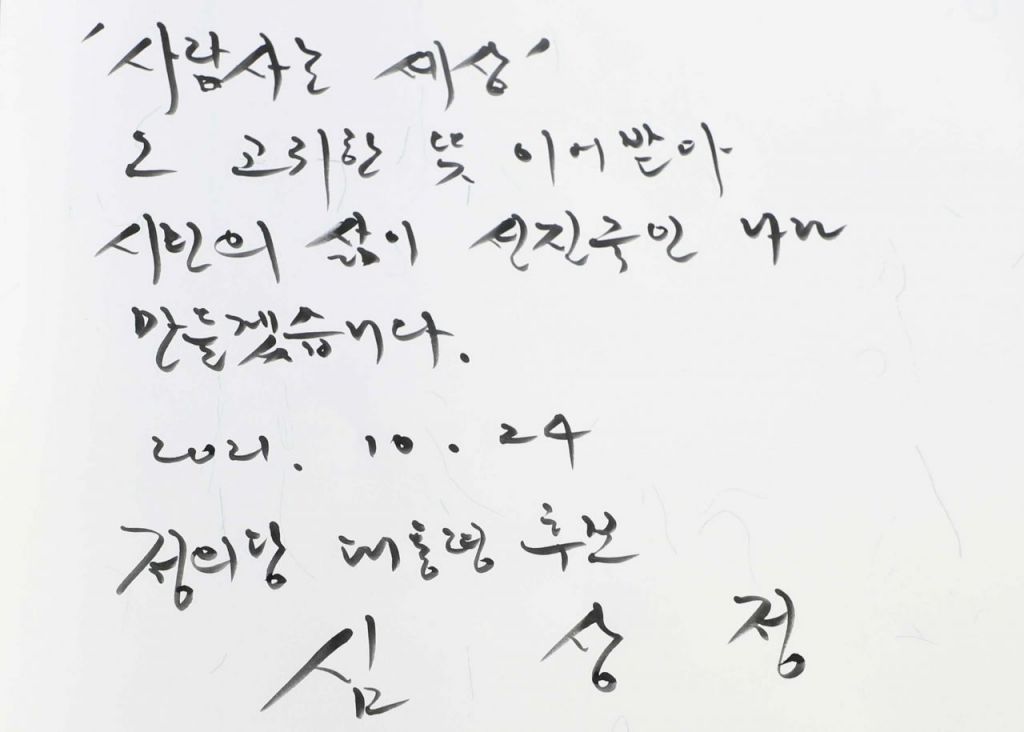 '사람사는 세상'
그 고귀한 뜻 이어받아
시민의 삶이 선진국인 나라
만들겠습니다.
2021. 10. 24
정의당 대통령 후보
심 상 정